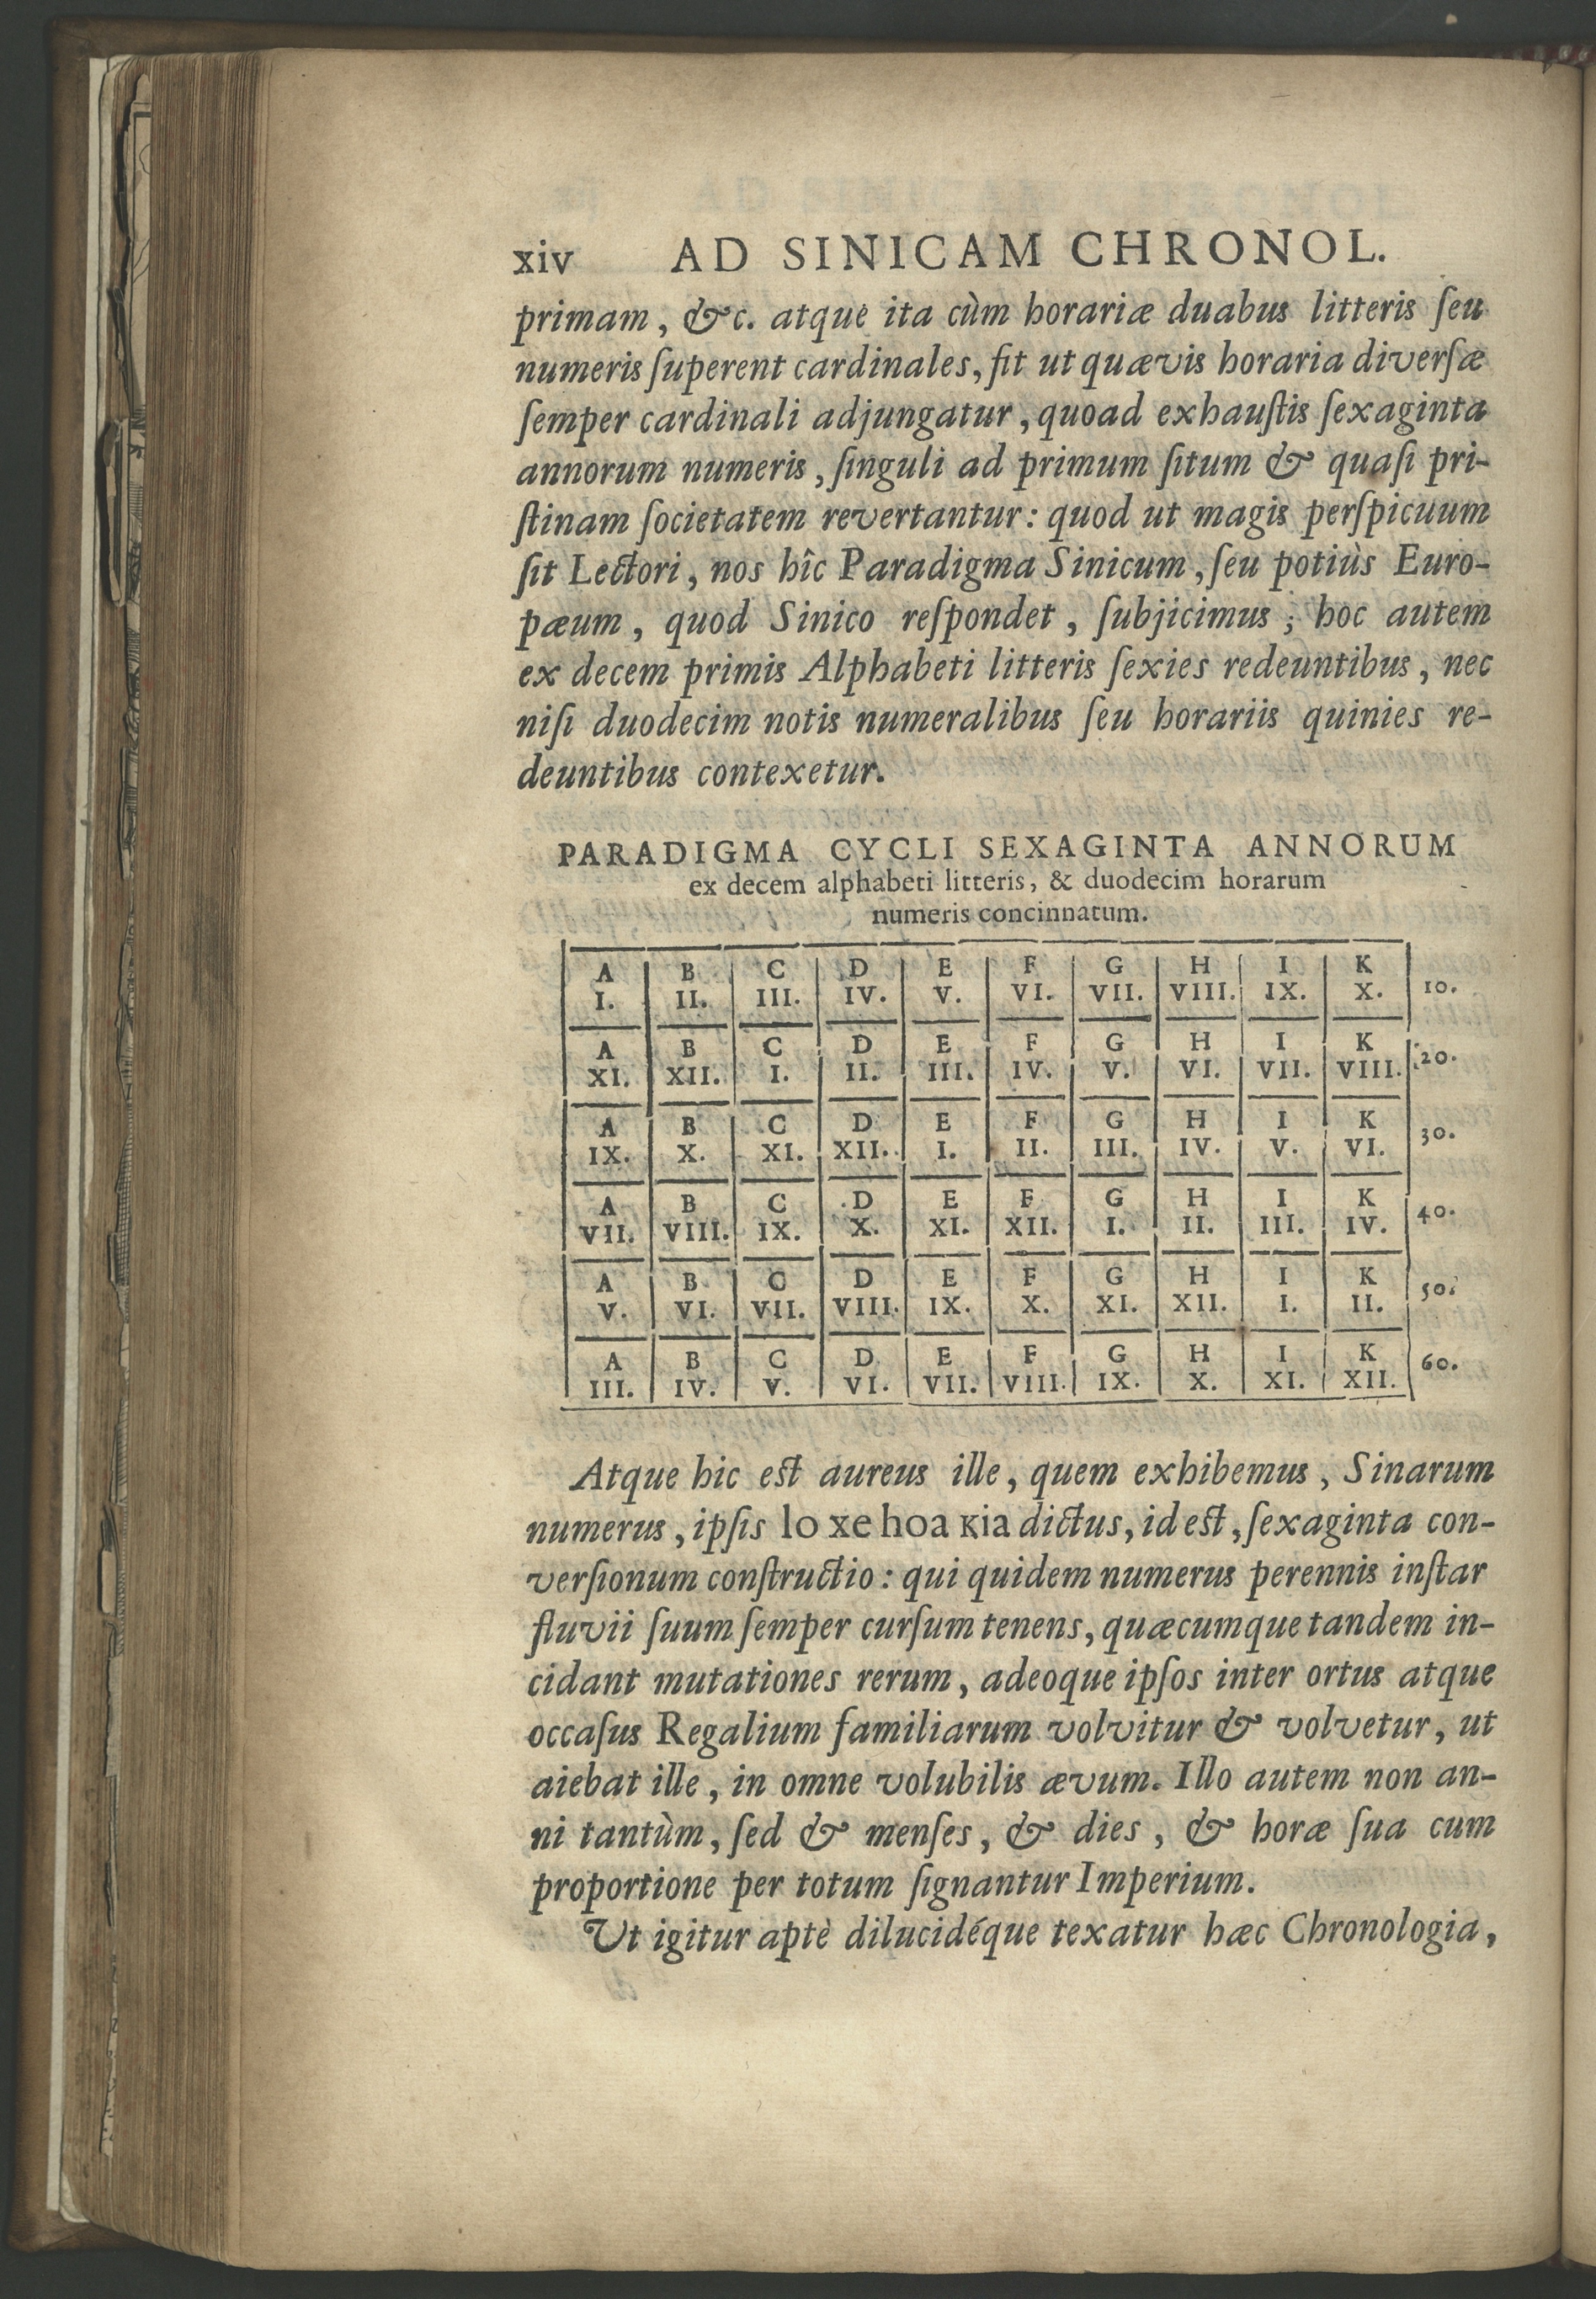 xiv AD SINICAM CHRONOL.
primam, &c. atque ita cùm horariæ duabus litteris ſeu
numeris ſuperent cardinales, fit ut quævis horaria diverſæ
ſemper cardinali adjungatur, quoad exhauſtis ſexaginta
annorum numeris, ſinguli ad primum ſitum & quaſi pri-
ſtinam ſocietatem revertantur: quod ut magis perſpicuum
ſit Lectori, nos hîc Paradigma Sinicum, ſeu potiùs Euro-
pæum, quod Sinico reſpondet, ſubjicimus; hoc autem
ex decem primis Alphabeti litteris ſexies redeuntibus, nec
niſi duodecim notis numeralibus ſeu horariis quinies re-
deuntibus contexetur.
PARADIGMA CYCLI SEXAGINTA ANNORUM
ex decem alphabeti litteris, & duodecim horarum
numeris concinnatum.
A B C D E F G H I K
I. II. III. IV. V. VI. VII. VIII. IX. X. 10.
A B C D E F G H I K
XI. XII. I. II. III. IV. V. VI. VII. VIII. 20.
A B C D E F G H I K
IX. X. XI. XII. I. II. III. IV. V. VI. 30.
A B C D E F G H I K
VII. VIII. IX. X. XI. XII. I. II. III. IV. 40.
A B C D E F G H I K
V. VI. VII. VIII. IX. X. XI. XII. I. II. 50.
A B C D E F G H I K
III. IV. V. VI. VII. VIII. IX. X. XI. XII. 60.
Atque hic est aureus ille, quem exhibemus, Sinarum
numerus, ipſis lo xe hoa kia dictus, id est, ſexaginta con-
verſionum conſtructio: qui quidem numerus perennis inſtar
fluvii ſuum ſemper curſum tenens, quæcumque tandem in-
cidant mutationes rerum, adeoque ipſos inter ortus atque
occaſus Regalium familiarum volvitur & volvetur, ut
aiebat ille, in omne volubilis ævum. Illo autem non an-
ni tantùm, ſed & menſes, & dies, & horæ ſua cum
proportione per totum ſignantur Imperium.
Ut igitur aptè dilucidéque texatur hæc Chronologia,